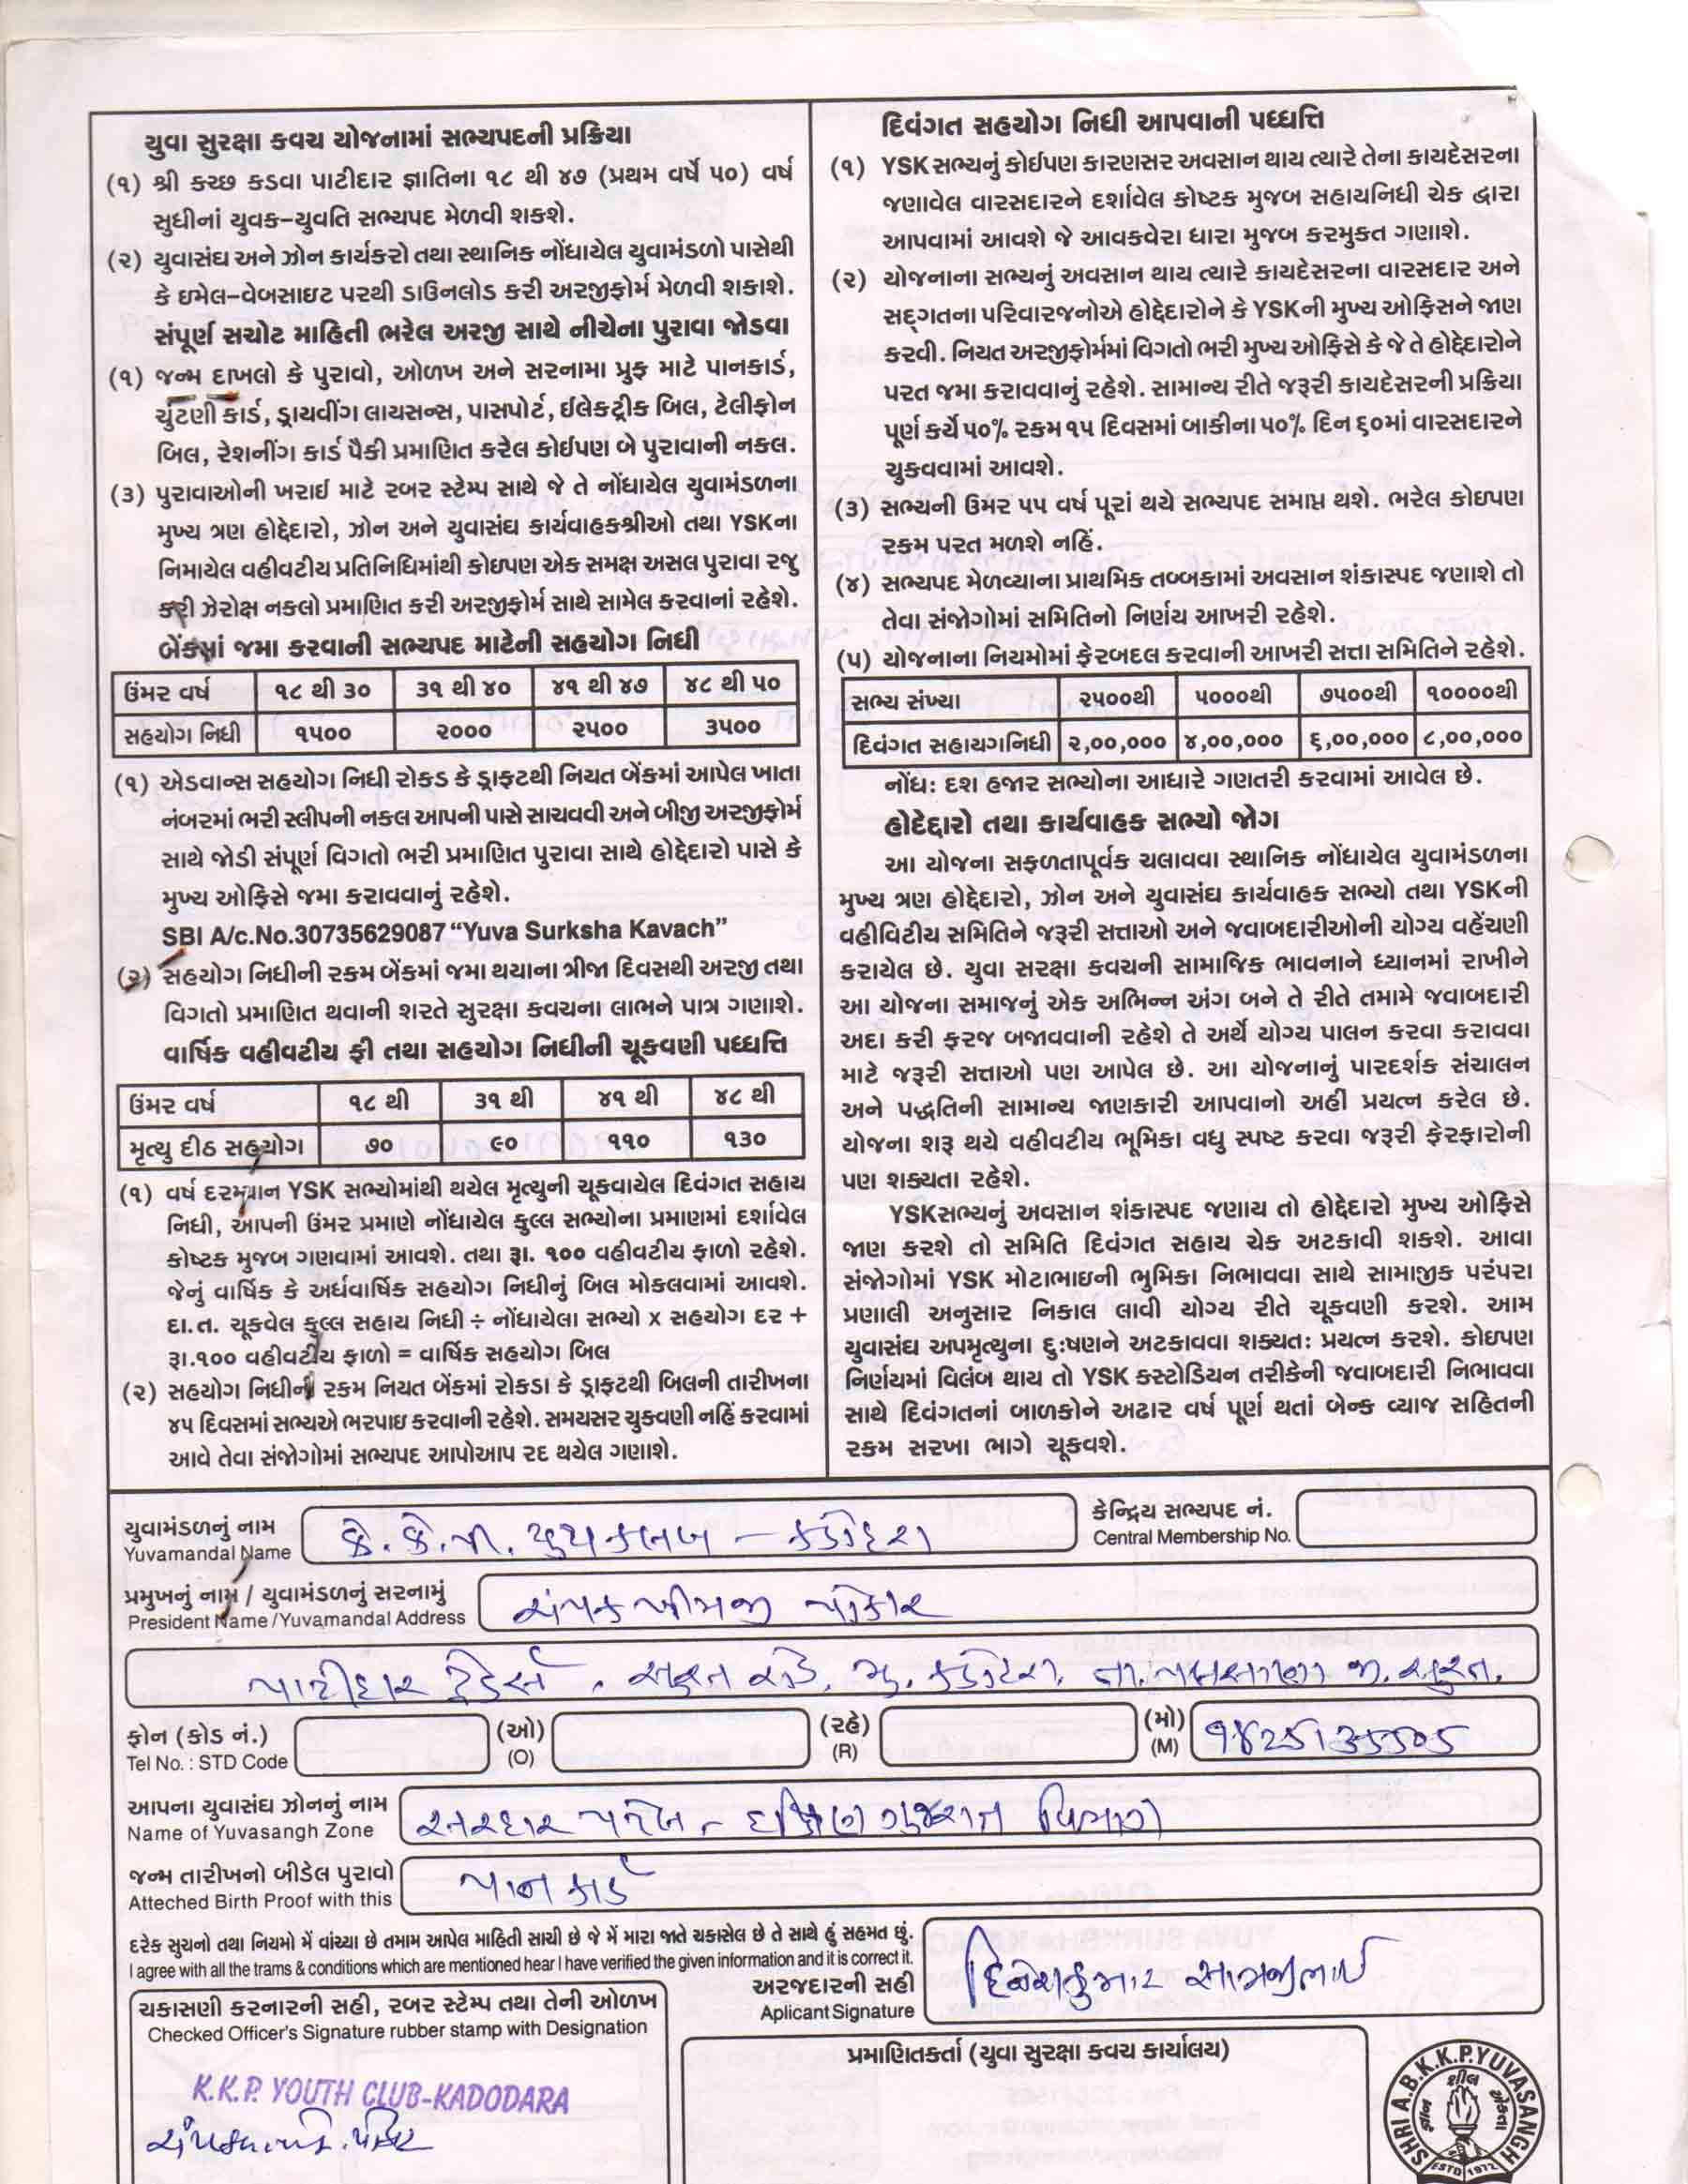 યુવા સુરક્ષા કવચ યોજનામાં સભ્યપદની પ્રક્રિયા
(૧) શ્રી કચ્છ કડવા પાટીદાર જ્ઞાતિના ૧૮ થી ૪૭ (પ્રથમ વર્ષે ૫૦) વર્ષ
સુધીનાં યુવક-યુવતિ સભ્યપદ મેળવી શકશે.
(૨) યુવાસંઘ અને ઝોન કાર્યકરો તથા સ્થાનિક નોંધાયેલ યુવામંડળો પાસેથી
કે ઇમેલ-વેબસાઇટ પરથી ડાઉનલોડ કરી અરજીફોર્મ મેળવી શકાશે.
સંપૂર્ણ સચોટ માહિતી ભરેલ અરજી સાથે નીચેના પુરાવા જોડવા
(૧) જન્મ દાખલો કે પુરાવો, ઓળખ અને સરનામા પ્રુફ માટે પાનકાર્ડ,
ચુંટણી કાર્ડ, ડ્રાયવીંગ લાયસન્સ, પાસપોર્ટ, ઈલેકટ્રીક બિલ, ટેલીફોન
બિલ, રેશનીંગ કાર્ડ પૈકી પ્રમાણિત કરેલ કોઈપણ બે પુરાવાની નકલ.
(૩) પુરાવાઓની ખરાઈ માટે રબર સ્ટેમ્પ સાથે જે તે નોંધાયેલ યુવામંડળના
મુખ્ય ત્રણ હોદ્દેદારો, ઝોન અને યુવાસંઘ કાર્યવાહકશ્રીઓ તથા YSKના
નિમાયેલ વહીવટીય પ્રતિનિધિમાંથી કોઇપણ એક સમક્ષ અસલ પુરાવા રજુ
કરી ઝેરોક્ષ નકલો પ્રમાણિત કરી અરજીફોર્મ સાથે સામેલ કરવાનાં રહેશે.
બેંકમાં જમા કરવાની સભ્યપદ માટેની સહયોગ નિધી
ઉંમર વર્ષ ૧૮ થી ૩૦ ૩૧ થી ૪૦ ૪૧ થી ૪૭ ૪૮ થી ૫૦
સહયોગ નિધી ૧૫૦૦ ૨૦૦૦ ૨૫૦૦ ૩૫૦૦
(૧) એડવાન્સ સહયોગ નિધી રોકડ કે ડ્રાફટથી નિયત બેંકમાં આપેલ ખાતા
નંબરમાં ભરી સ્લીપની નકલ આપની પાસે સાચવવી અને બીજી અરજીફોર્મ
સાથે જોડી સંપૂર્ણ વિગતો ભરી પ્રમાણિત પુરાવા સાથે હોદ્દેદારો પાસે કે
મુખ્ય ઓફિસે જમા કરાવવાનું રહેશે.
SBI A/c.No.30735629087 “Yuva Surksha Kavach”
(૨) સહયોગ નિધીની રકમ બેંકમાં જમા થયાના ત્રીજા દિવસથી અરજી તથા
વિગતો પ્રમાણિત થવાની શરતે સુરક્ષા કવચના લાભને પાત્ર ગણાશે.
વાર્ષિક વહીવટીય ફી તથા સહયોગ નિધીની ચૂકવણી પધ્ધત્તિ
ઉંમર વર્ષ ૧૮ થી ૩૧ થી ૪૧ થી ૪૮ થી
મૃત્યુ દીઠ સહયોગ ૭૦ ૯૦ ૧૧૦ ૧૩૦
(૧) વર્ષ દરમ્યાન YSK સભ્યોમાંથી થયેલ મૃત્યુની ચૂકવાયેલ દિવંગત સહાય
નિધી, આપની ઉંમર પ્રમાણે નોંધાયેલ કુલ્લ સભ્યોના પ્રમાણમાં દર્શાવેલ
કોષ્ટક મુજબ ગણવામાં આવશે. તથા રૂા. ૧૦૦ વહીવટીય ફાળો રહેશે.
જેનું વાર્ષિક કે અર્ધવાર્ષિક સહયોગ નિધીનું બિલ મોકલવામાં આવશે.
દા.ત. ચૂકવેલ કુલ્લ સહાય નિધી ÷ નોંધાયેલા સભ્યો x સહયોગ દર +
રૂા.૧૦૦ વહીવટીય ફાળો = વાર્ષિક સહયોગ બિલ
(૨) સહયોગ નિધીની રકમ નિયત બેંકમાં રોકડા કે ડ્રાફટથી બિલની તારીખના
૪૫ દિવસમાં સભ્યએ ભરપાઇ કરવાની રહેશે. સમયસર ચુકવણી નહિં કરવામાં
આવે તેવા સંજોગોમાં સભ્યપદ આપોઆપ રદ થયેલ ગણાશે.
દિવંગત સહયોગ નિધી આપવાની પધ્ધત્તિ
(૧) YSK સભ્યનું કોઈપણ કારણસર અવસાન થાય ત્યારે તેના કાયદેસરના
જણાવેલ વારસદારને દર્શાવેલ કોષ્ટક મુજબ સહાયનિધી ચેક દ્વારા
આપવામાં આવશે જે આવકવેરા ધારા મુજબ કરમુકત ગણાશે.
(૨) યોજનાના સભ્યનું અવસાન થાય ત્યારે કાયદેસરના વારસદાર અને
સદ્ગતના પરિવારજનોએ હોદ્દેદારોને કે YSKની મુખ્ય ઓફિસને જાણ
કરવી. નિયત અરજીફોર્મમાં વિગતો ભરી મુખ્ય ઓફિસે કે જે તે હોદ્દેદારોને
પરત જમા કરાવવાનું રહેશે. સામાન્ય રીતે જરૂરી કાયદેસરની પ્રક્રિયા
પૂર્ણ કર્યે ૫૦% રકમ ૧૫ દિવસમાં બાકીના ૫૦% દિન ૬૦માં વારસદારને
ચુકવવામાં આવશે.
(૩) સભ્યની ઉંમર ૫૫ વર્ષ પૂરાં થયે સભ્યપદ સમાપ્ત થશે. ભરેલ કોઇપણ
રકમ પરત મળશે નહિં.
(૪) સભ્યપદ મેળવ્યાના પ્રાથમિક તબ્બકામાં અવસાન શંકાસ્પદ જણાશે તો
તેવા સંજોગોમાં સમિતિનો નિર્ણય આખરી રહેશે.
(૫) યોજનાના નિયમોમાં ફેરબદલ કરવાની આખરી સત્તા સમિતિને રહેશે.
સભ્ય સંખ્યા ૨૫૦૦થી ૫૦૦૦થી ૭૫૦૦થી ૧૦૦૦૦થી
દિવંગત સહાયગનિધી ૨,૦૦,૦૦૦ ૪,૦૦,૦૦૦ ૬,૦૦,૦૦૦ ૮,૦૦,૦૦૦
નોંધ: દશ હજાર સભ્યોના આધારે ગણતરી કરવામાં આવેલ છે.
હોદેદ્દારો તથા કાર્યવાહક સભ્યો જોગ
આ યોજના સફળતાપૂર્વક ચલાવવા સ્થાનિક નોંધાયેલ યુવામંડળના
મુખ્ય ત્રણ હોદ્દેદારો, ઝોન અને યુવાસંઘ કાર્યવાહક સભ્યો તથા YSKની
વહીવિટીય સમિતિને જરૂરી સત્તાઓ અને જવાબદારીઓની યોગ્ય વહેંચણી
કરાયેલ છે. યુવા સરક્ષા કવચની સામાજિક ભાવનાને ધ્યાનમાં રાખીને
આ યોજના સમાજનું એક અભિન્ન અંગ બને તે રીતે તમામે જવાબદારી
અદા કરી ફરજ બજાવવાની રહેશે તે અર્થે યોગ્ય પાલન કરવા કરાવવા
માટે જરૂરી સત્તાઓ પણ આપેલ છે. આ યોજનાનું પારદર્શક સંચાલન
અને પદ્ધતિની સામાન્ય જાણકારી આપવાનો અહીં પ્રયત્ન કરેલ છે.
યોજના શરૂ થયે વહીવટીય ભૂમિકા વધુ સ્પષ્ટ કરવા જરૂરી ફેરફારોની
પણ શક્યતા રહેશે.
YSKસભ્યનું અવસાન શંકાસ્પદ જણાય તો હોદ્દેદારો મુખ્ય ઓફિસે
જાણ કરશે તો સમિતિ દિવંગત સહાય ચેક અટકાવી શકશે. આવા
સંજોગોમાં YSK મોટાભાઇની ભુમિકા નિભાવવા સાથે સામાજીક પરંપરા
પ્રણાલી અનુસાર નિકાલ લાવી યોગ્ય રીતે ચૂકવણી કરશે. આમ
યુવાસંઘ અપમૃત્યુના દુ:ષણને અટકાવવા શક્યત: પ્રયત્ન કરશે. કોઇપણ
નિર્ણયમાં વિલંબ થાય તો YSK કસ્ટોડિયન તરીકેની જવાબદારી નિભાવવા
સાથે દિવંગતનાં બાળકોને અઢાર વર્ષ પૂર્ણ થતાં બેન્ક વ્યાજ સહિતની
રકમ સરખા ભાગે ચૂકવશે.
યુવામંડળનું નામ કે. કે. પી. યુથ કલબ - કડોદરા કેન્દ્રિય સભ્યપદ નં.
Yuvamandal Name Central Membership No.
પ્રમુખનું નામ / યુવામંડળનું સરનામું ચંપક ખીમજી પોકાર
President Name /Yuvamandal Address
પાટીદાર ટ્રેડર્સ, સુરત રોડ, મુ. કડોદરા, તા. પલસાણા જી. સુરત.
ફોન (કોડ નં.) (ઓ) (રહે) (મો)
Tel No. : STD Code (O) (R) (M) 9825135505
આપના યુવાસંઘ ઝોનનું નામ સરદાર પટેલ - દક્ષિણ ગુજરાત વિભાગ
Name of Yuvasangh Zone
જન્મ તારીખનો બીડેલ પુરાવો પાન કાર્ડ
Atteched Birth Proof with this
દરેક સુચનો તથા નિયમો મેં વાંચ્યા છે તમામ આપેલ માહિતી સાચી છે જે મેં મારા જાતે ચકાસેલ છે તે સાથે હું સહમત છું.
I agree with all the trams & conditions which are mentioned hear I have verified the given information and it is correct it.
અરજદારની સહી દિનેશકુમાર સામજીભાઈ
Aplicant Signature
ચકાસણી કરનારની સહી, રબર સ્ટેમ્પ તથા તેની ઓળખ
Checked Officer's Signature rubber stamp with Designation
K.K.P. YOUTH CLUB-KADODARA
પ્રમાણિતકર્તા (યુવા સુરક્ષા કવચ કાર્યાલય)
SHRI A.B.K.K.P.YUVASANGH
શીલ
જ્ઞાન
એકતા
ESTD 1972